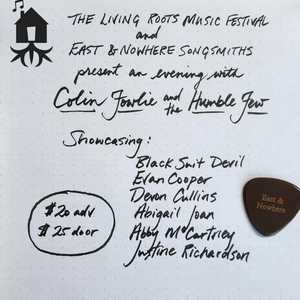 THE LIVING ROOTS MUSIC FESTIVAL
and
EAST & NOWHERE SONGSMITHS
present an evening with
Colin Fowlie and the Humble Few
Showcasing:
Black Suit Devil
Evan Cooper
Devon Cullins
Abigail Joan
Abby McCartney
Justine Richardson
$20 adv
$25 door
East &
Nowhere